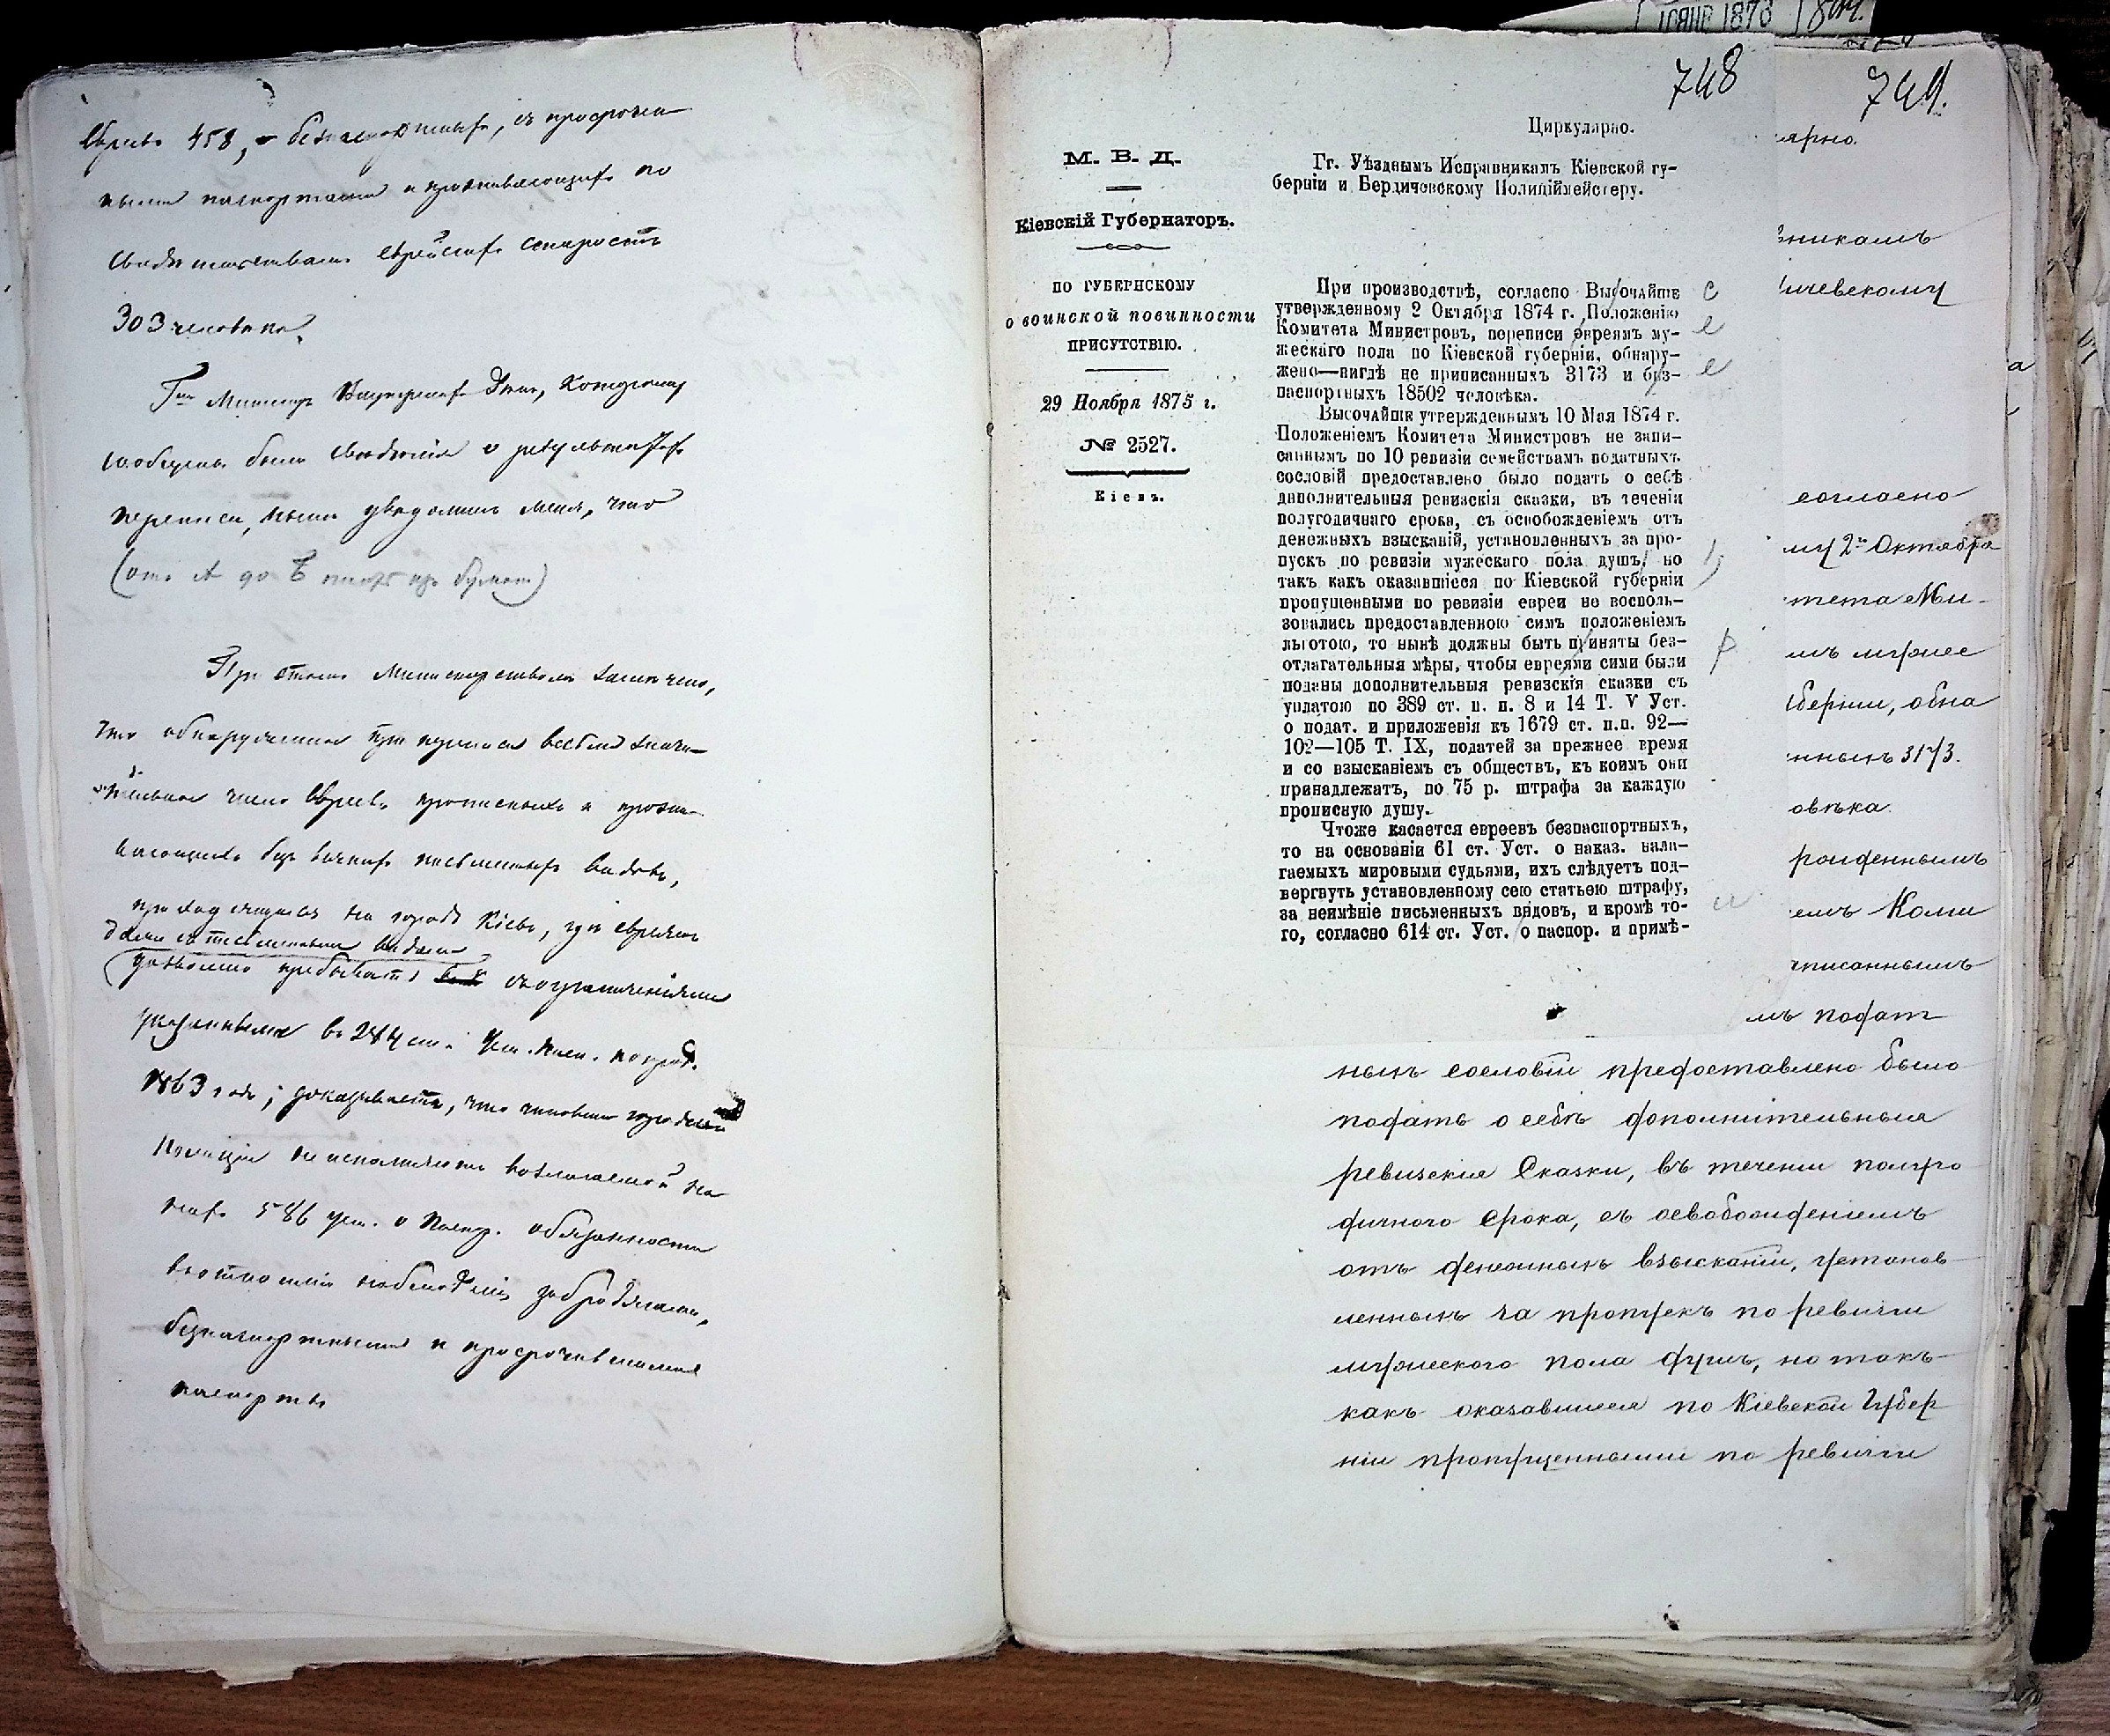 евреевъ 458, - безпаспортныхъ, съ просрочен
ными паспортами и проживающихъ по
свидѣтельствамъ еврейскихъ старостъ
303 человѣка.
Гнъ Министръ Внутреннихъ Дѣлъ, которому
сообщены были свѣдѣнія о результатахъ
переписи, нынѣ увѣдомилъ меня, что
(отъ А до Б
При этомъ Министерствомъ замѣчено,
что обнаруженное при переписи весьма значи-
тельное число евреевъ прописныхъ и прожи-
вающихъ безъ всякихъ письменныхъ видовъ,
приходящееся на городъ Кіевъ, гдѣ евреямъ
даже съ письменными видами
дозволено пребывать съ ограниченіями
указанными въ 284 ст. Уст. Пасп. по прод.
1863 года; доказываетъ, что чиновники городской
Полиціи не исполняютъ возлагаемой на
нихъ 586 уст. о Паспор. обязанности
въ отношеніи наблюденія за бродягами,
безпаспортными и просрочившими
паспорты
1 ЯНВ 1876
748
Циркулярно.
М. В. Д.
Кіевскій Губернаторъ.
ПО ГУБЕРНСКОМУ
о воинской повинности
ПРИСУТСТВІЮ.
29 Ноября 1875 г.
№ 2527.
Кіевъ.
Гг. Уѣзднымъ Исправникамъ Кіевской гу-
берніи и Бердичевскому Полиціймейстеру.
При производствѣ, согласно Высочайше
утвержденному 2 Октября 1874 г. Положенію
Комитета Министровъ, переписи евреямъ му-
жескаго пола по Кіевской губерніи, обнару-
жено—нигдѣ не приписанныхъ 3173 и без-
паспортныхъ 18502 человѣка.
Высочайше утвержденнымъ 10 Мая 1874 г.
Положеніемъ Комитета Министровъ не запи-
саннымъ по 10 ревизіи семействамъ податныхъ
сословій предоставлено было подать о себѣ
дополнительныя ревизскія сказки, въ теченіи
полугодичнаго срока, съ освобожденіемъ отъ
денежныхъ взысканій, установленныхъ за про-
пускъ по ревизіи мужескаго пола душъ, но
такъ какъ оказавшіеся по Кіевской губерніи
пропущенными по ревизіи евреи не восполь-
зовались предоставленною симъ положеніемъ
льготою, то нынѣ должны быть приняты без-
отлагательныя мѣры, чтобы евреями сими были
поданы дополнительныя ревизскія сказки съ
уплатою по 389 ст. п. п. 8 и 14 Т. V Уст.
о подат. и приложенія къ 1679 ст. п.п. 92—
102—105 Т. IX, податей за прежнее время
и со взысканіемъ съ обществъ, къ коимъ они
принадлежатъ, по 75 р. штрафа за каждую
прописную душу.
Чтоже касается евреевъ безпаспортныхъ,
то на основаніи 61 ст. Уст. о наказ. нала-
гаемыхъ мировыми судьями, ихъ слѣдуетъ под-
вергнуть установленному сею статьею штрафу,
за неимѣніе письменныхъ видовъ, и кромѣ то-
го, согласно 614 ст. Уст. о паспор. и примѣ-
с
е
е
р
и
749.
ярно.
вникамъ
ичевскому
согласно
му 2го Октября
тета Ми-
мъ мужес
берніи, обна
нныхъ 3173.
овѣка.
рожденнымъ
емъ Коми
писаннымъ
мъ подат
ныхъ сословій предоставлено было
подать о себѣ дополнительныя
ревизскія Сказки, въ теченіи полуго
дичного срока, съ освобожденіемъ
отъ денежныхъ взысканій, установ
ленныхъ за пропускъ по ревизіи
мужеского пола душъ, но такъ
какъ оказавшіеся по Кіевской Губер
ніи пропущенными по ревизіи